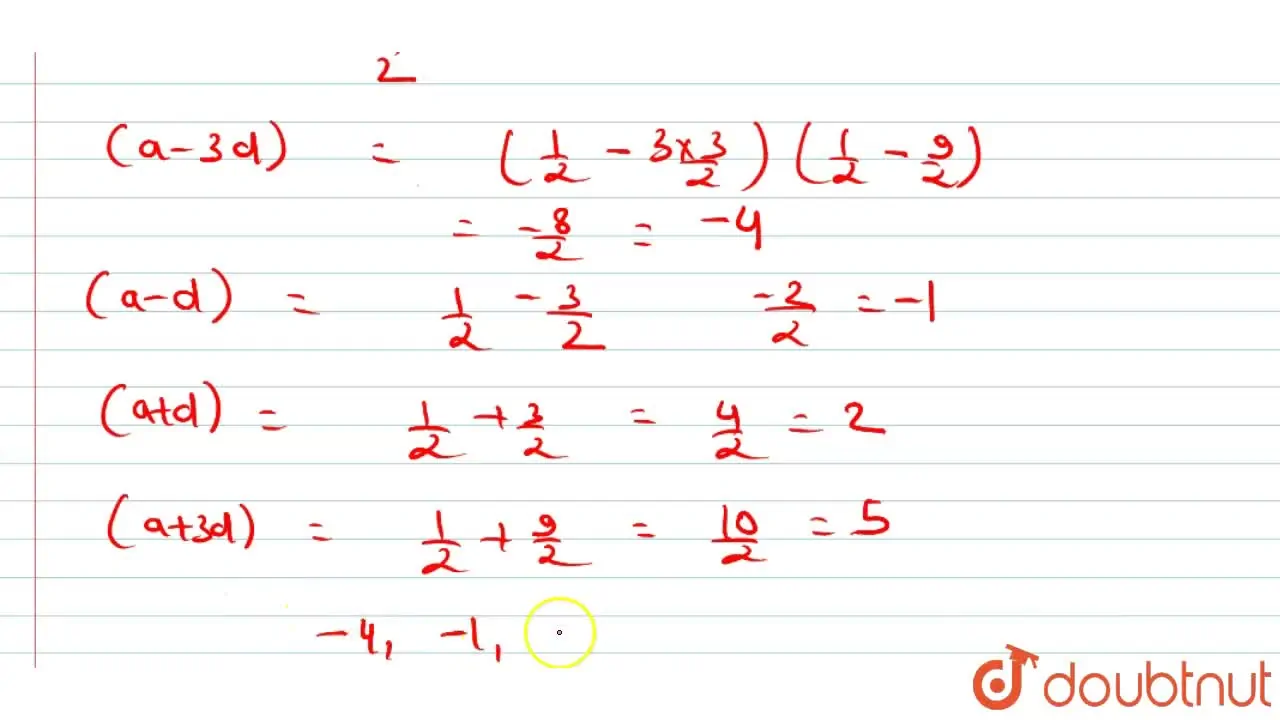 2
(a-3d) = (1/2 - 3×3/2) (1/2 - 9/2)
= -8/2 = -4
(a-d) = 1/2 - 3/2 -2/2 = -1
(a+d) = 1/2 + 3/2 = 4/2 = 2
(a+3d) = 1/2 + 9/2 = 10/2 = 5
-4, -1,
doubtnut